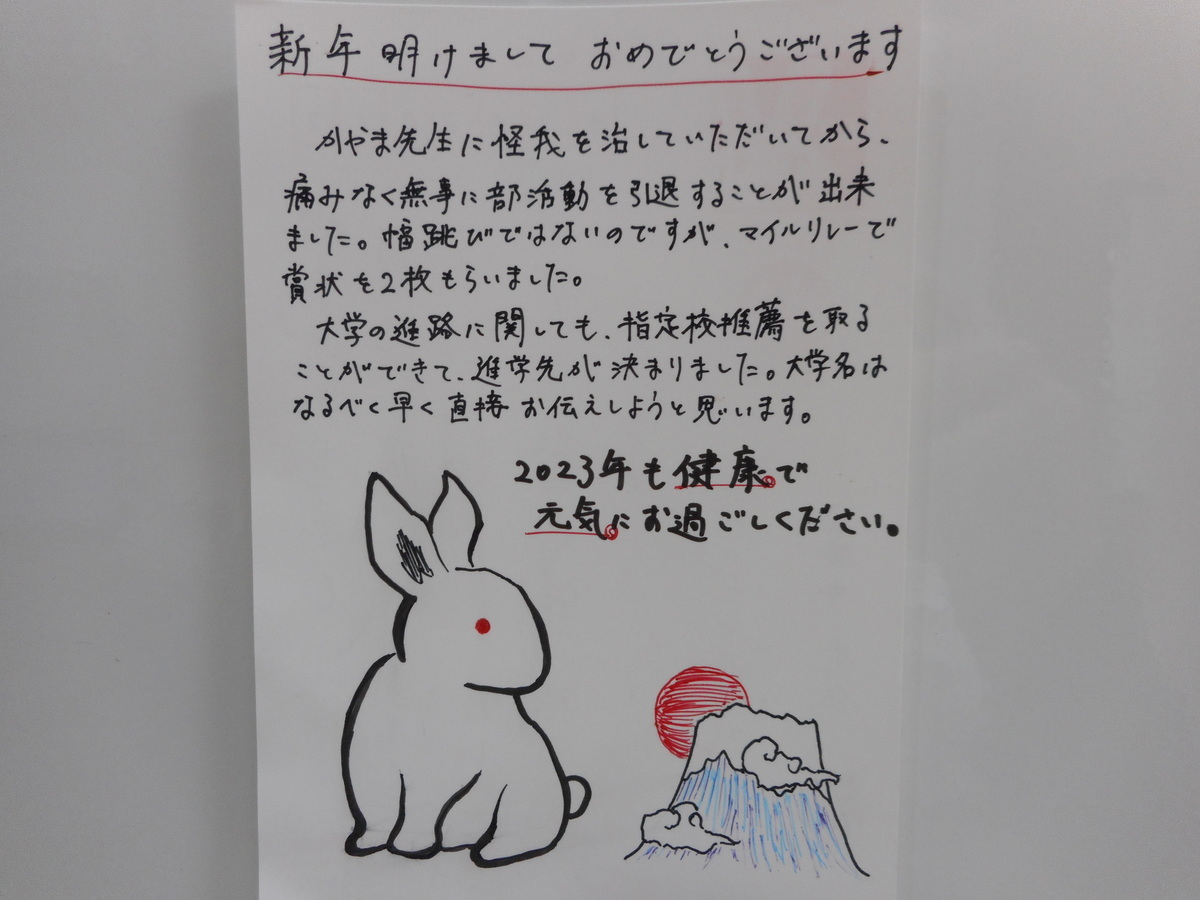 新年明けまして おめでとうございます
かやま先生に怪我を治していただいてから、
痛みなく無事に部活動を引退することが出来
ました。幅跳びではないのですが、マイルリレーで
賞状を2枚もらいました。
大学の進路に関しても、指定校推薦を取る
ことができて、進学先が決まりました。大学名は
なるべく早く直接お伝えしようと思います。
2023年も健康。で
元気。にお過ごしください。